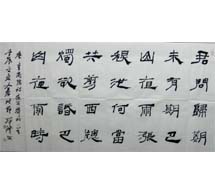 君問歸期
未有期巴
山夜雨漲
秋池何當
共剪西窗
燭卻話巴
山夜雨時